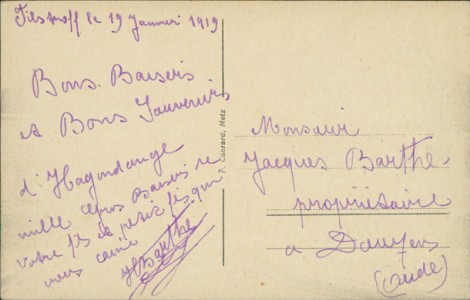 Filstroff le 19 Janvier 1919
Bons Baisers
et Bons Souvenirs
d'Hagondange
mille gros Baisers de
votre fils et petit fils qui
vous aime
HBarthe
P. Cuerard, Metz
Monsieur
Jacques Barthe
propriétaire
a
(Aude)